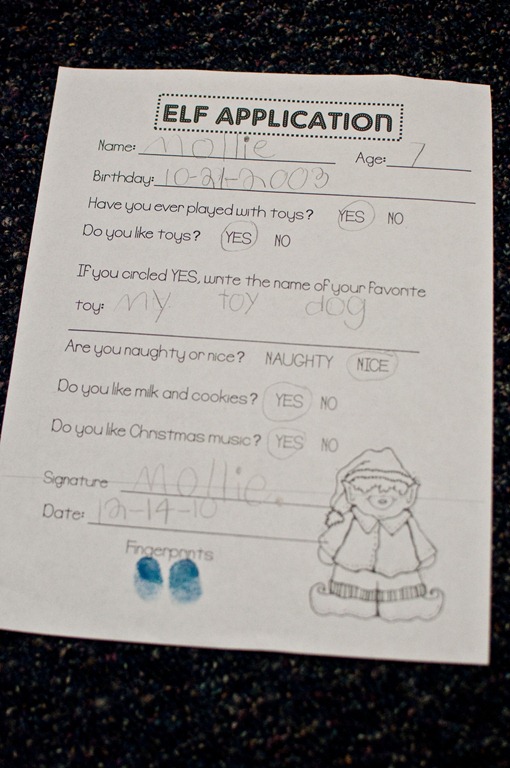 ELF APPLICATION
Name: Mollie Age: 7
Birthday: 10-21-2003
Have you ever played with toys? YES NO
Do you like toys? YES NO
If you circled YES, write the name of your favorite
toy: My toy dog
Are you naughty or nice? NAUGHTY NICE
Do you like milk and cookies? YES NO
Do you like Christmas music? YES NO
Signature Mollie.
Date: 12-14-10
Fingerprints